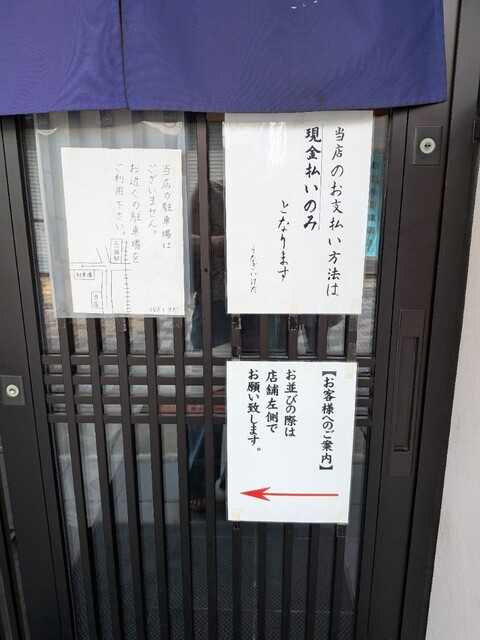 当店のお支払い方法は
現金払いのみ
となります
うなぎいけだ
当店の駐車場は
ございません。
お近くの駐車場を
ご利用下さい。
駐車場
当店
うなぎいけだ
【お客様へのご案内】
お並びの際は
店舗左側で
お願い致します。